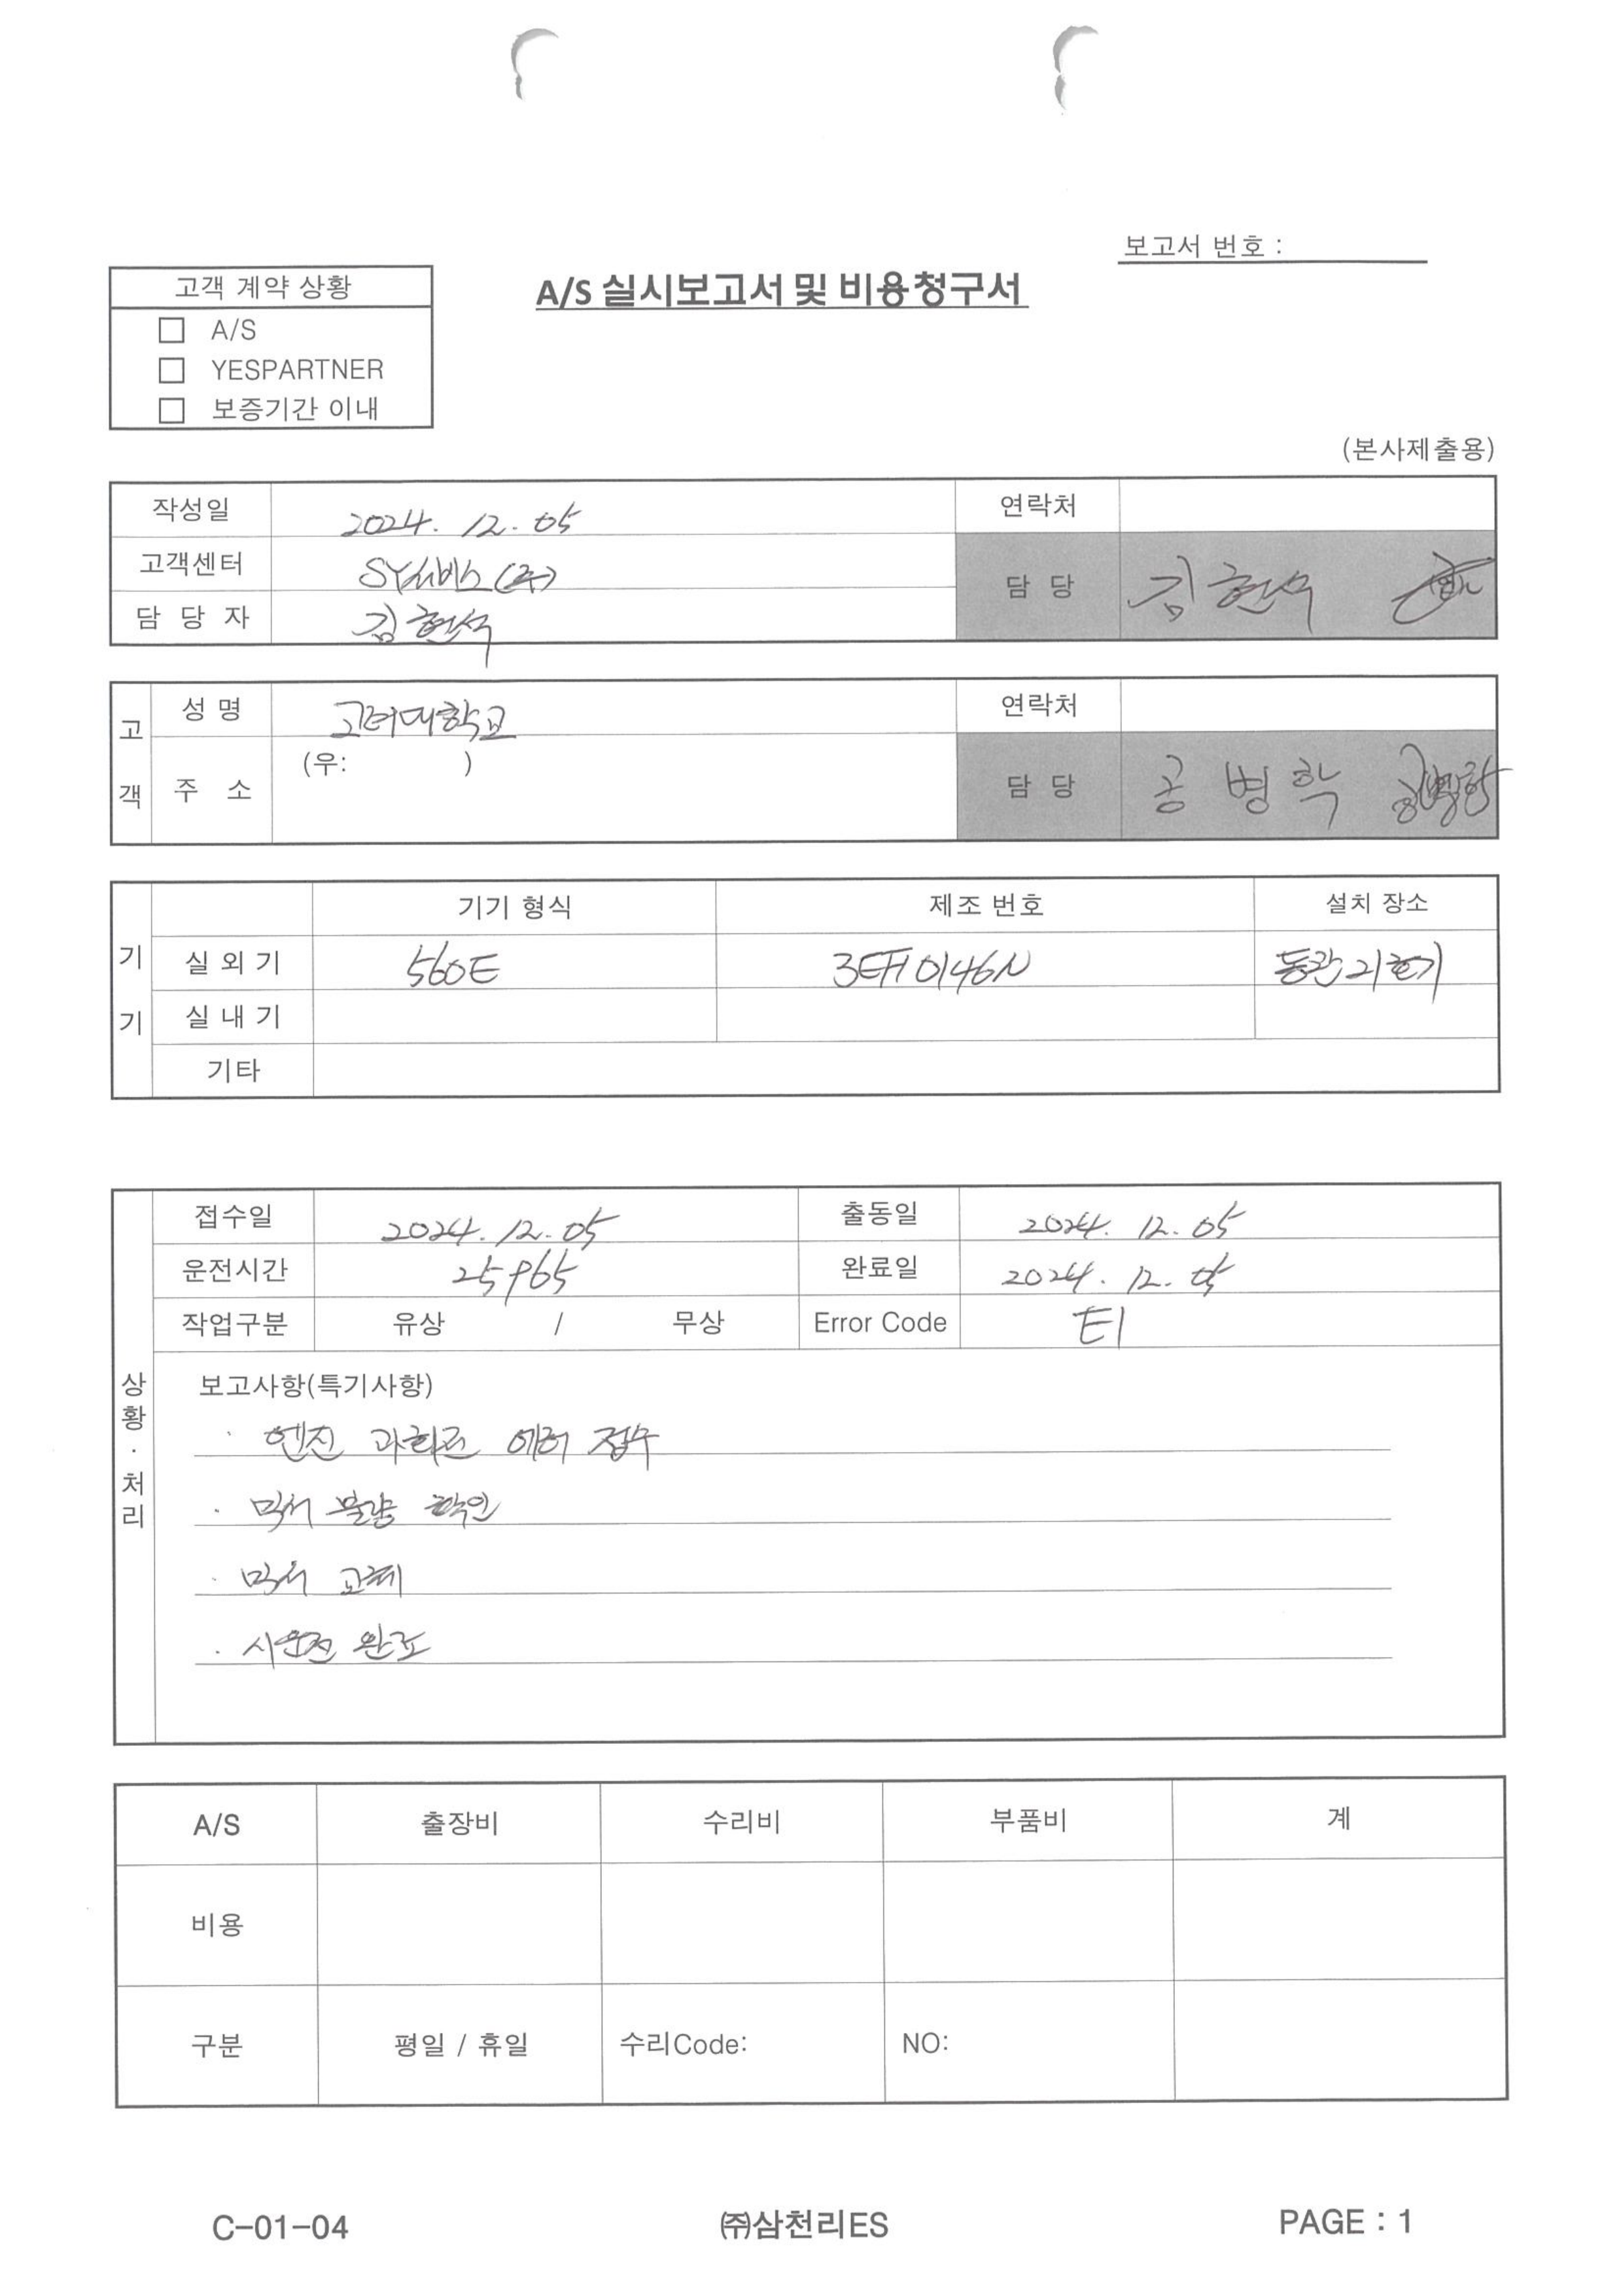 보고서 번호 :
고객 계약 상황
A/S 실시보고서 및 비용청구서
□ A/S
□ YESPARTNER
□ 보증기간 이내
(본사제출용)
작성일 2024. 12. 05 연락처
고객센터 SY서비스(주)
담당 김현석
담 당 자 김현석
고객
성 명 고려대학교 연락처
주 소 (우: )
담당 공병학 공병학
기기
기기 형식 제조 번호 설치 장소
실 외 기 560E 0146N 동관
실 내 기
기타
상황·처리
접수일 2024. 12. 05 출동일 2024. 12. 05
운전시간 25965 완료일 2024. 12. 05
작업구분 유상 / 무상 Error Code E1
보고사항(특기사항)
· 엔진 과회전 에러 접수
· 믹서 불량 확인
· 믹서 교체
· 시운전 완료
A/S 출장비 수리비 부품비 계
비용
구분 평일 / 휴일 수리Code: NO:
C-01-04 ㈜삼천리ES PAGE : 1